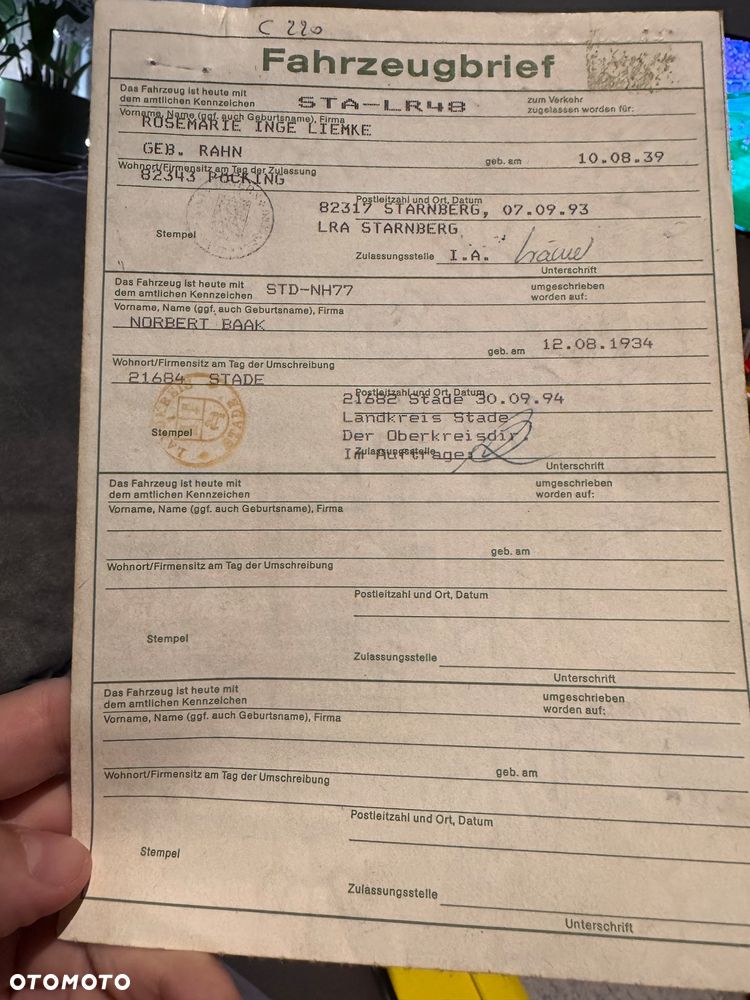 C 220
Fahrzeugbrief
Das Fahrzeug ist heute mit
dem amtlichen Kennzeichen STA-LR48
zum Verkehr
zugelassen worden für:
Vorname, Name (ggf. auch Geburtsname), Firma
ROSEMARIE INGE LIEMKE
GEB. RAHN
geb. am 10.08.39
Wohnort/Firmensitz am Tag der Zulassung
82343 POCKING
Postleitzahl und Ort, Datum
82317 STARNBERG, 07.09.93
LRA STARNBERG
Stempel
Zulassungsstelle I.A.
Unterschrift
Das Fahrzeug ist heute mit
dem amtlichen Kennzeichen STD-NH77
umgeschrieben
worden auf:
Vorname, Name (ggf. auch Geburtsname), Firma
NORBERT BAAK
geb. am 12.08.1934
Wohnort/Firmensitz am Tag der Umschreibung
21684 STADE
Postleitzahl und Ort, Datum
21682 Stade 30.09.94
Landkreis Stade
Stempel
Der Oberkreisdir.
Zulassungsstelle
Im Auftrage:
Unterschrift
Das Fahrzeug ist heute mit
dem amtlichen Kennzeichen
umgeschrieben
worden auf:
Vorname, Name (ggf. auch Geburtsname), Firma
geb. am
Wohnort/Firmensitz am Tag der Umschreibung
Postleitzahl und Ort, Datum
Stempel
Zulassungsstelle
Unterschrift
Das Fahrzeug ist heute mit
dem amtlichen Kennzeichen
umgeschrieben
worden auf:
Vorname, Name (ggf. auch Geburtsname), Firma
geb. am
Wohnort/Firmensitz am Tag der Umschreibung
Postleitzahl und Ort, Datum
Stempel
Zulassungsstelle
Unterschrift
OTOMOTO